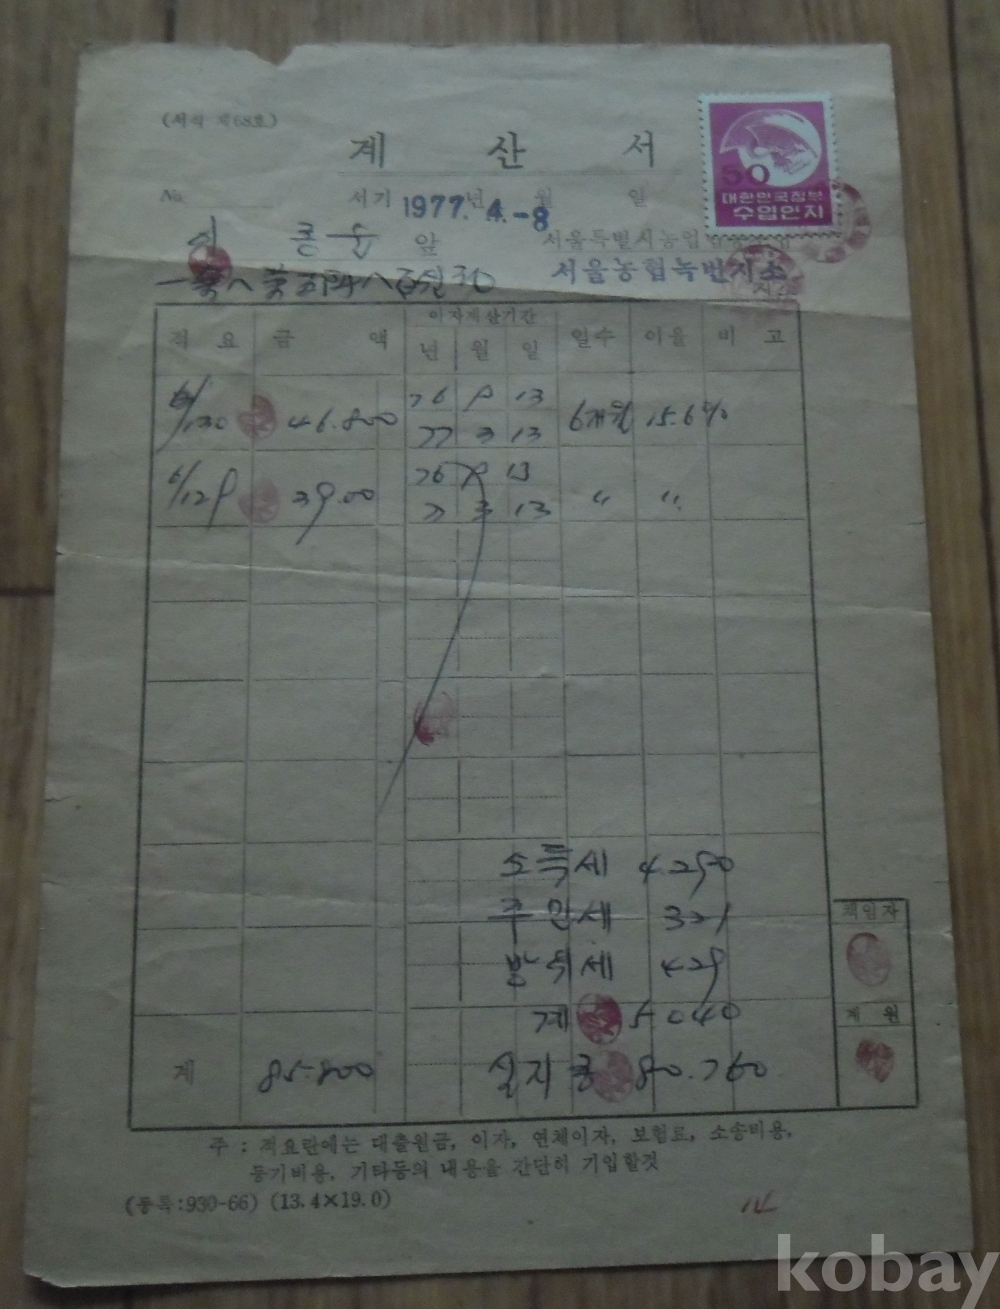 (서식 제68호)
계 산 서
50
대한민국정부
수입인지
No.
서기 1977.년 4.-8 월 일
앞 서울특별시농업
서울농협녹번지소
이자계산기간
적 요 금 액 년 월 일 일수 이율 비 고
6/130 46.800 76 9 13 6개월 15.6%
77 3 13
6/129 39.00 76 9 13 〃 〃
77 3 13
소득세 4.290
주민세 321
방위세 429
계 5040
계 85.800 실지 80.760
책임자
계 원
주 : 적요란에는 대출원금, 이자, 연체이자, 보험료, 소송비용,
등기비용, 기타등의 내용을 간단히 기입할것
(동록:930-66) (13.4×19.0)
kobay